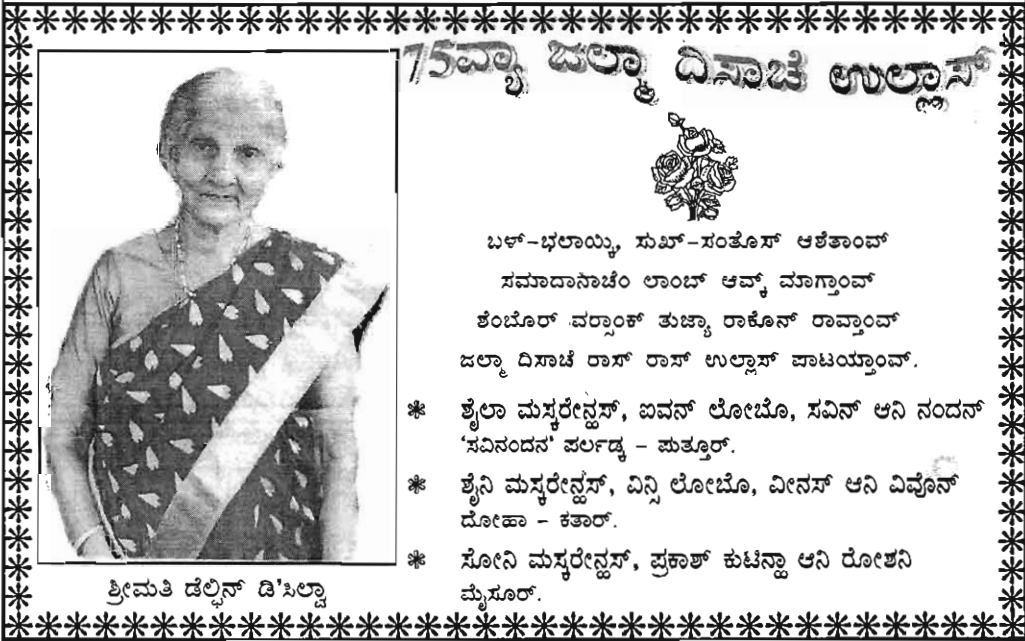 75ವ್ಯಾ ಜಲ್ಮಾ ದಿಸಾಚೆ ಉಲ್ಲಾಸ್
ಬಳ್-ಭಲಾಯ್ಕಿ, ಸುಖ್-ಸಂತೊಸ್ ಆಶೆತಾಂವ್
ಸಮಾದಾನಾಚೆಂ ಲಾಂಬ್ ಆವ್ಕ್ ಮಾಗ್ತಾಂವ್
ಶೆಂಬೊರ್ ವರ್ಸಾಂಕ್ ತುಜ್ಯಾ ರಾಕೊನ್ ರಾವ್ತಾಂವ್
ಜಲ್ಮಾ ದಿಸಾಚೆ ರಾಸ್ ರಾಸ್ ಉಲ್ಲಾಸ್ ಪಾಟಯ್ತಾಂವ್.
ಶೈಲಾ ಮಸ್ಕರೇನ್ಹಸ್, ಐವನ್ ಲೋಬೊ, ಸವಿನ್ ಆನಿ ನಂದನ್
'ಸವಿನಂದನ' ಪರ್ಲಡ್ಕ - ಪುತ್ತೂರ್.
ಶೈನಿ ಮಸ್ಕರೇನ್ಹಸ್, ವಿನ್ಸಿ ಲೋಬೊ, ವೀನಸ್ ಆನಿ ವಿವೊನ್
ದೋಹಾ - ಕತಾರ್.
ಸೋನಿ ಮಸ್ಕರೇನ್ಹಸ್, ಪ್ರಕಾಶ್ ಕುಟಿನ್ಹಾ ಆನಿ ರೋಶನಿ
ಮೈಸೂರ್.
ಶ್ರೀಮತಿ ಡೆಲ್ಫಿನ್ ಡಿ'ಸಿಲ್ವಾ